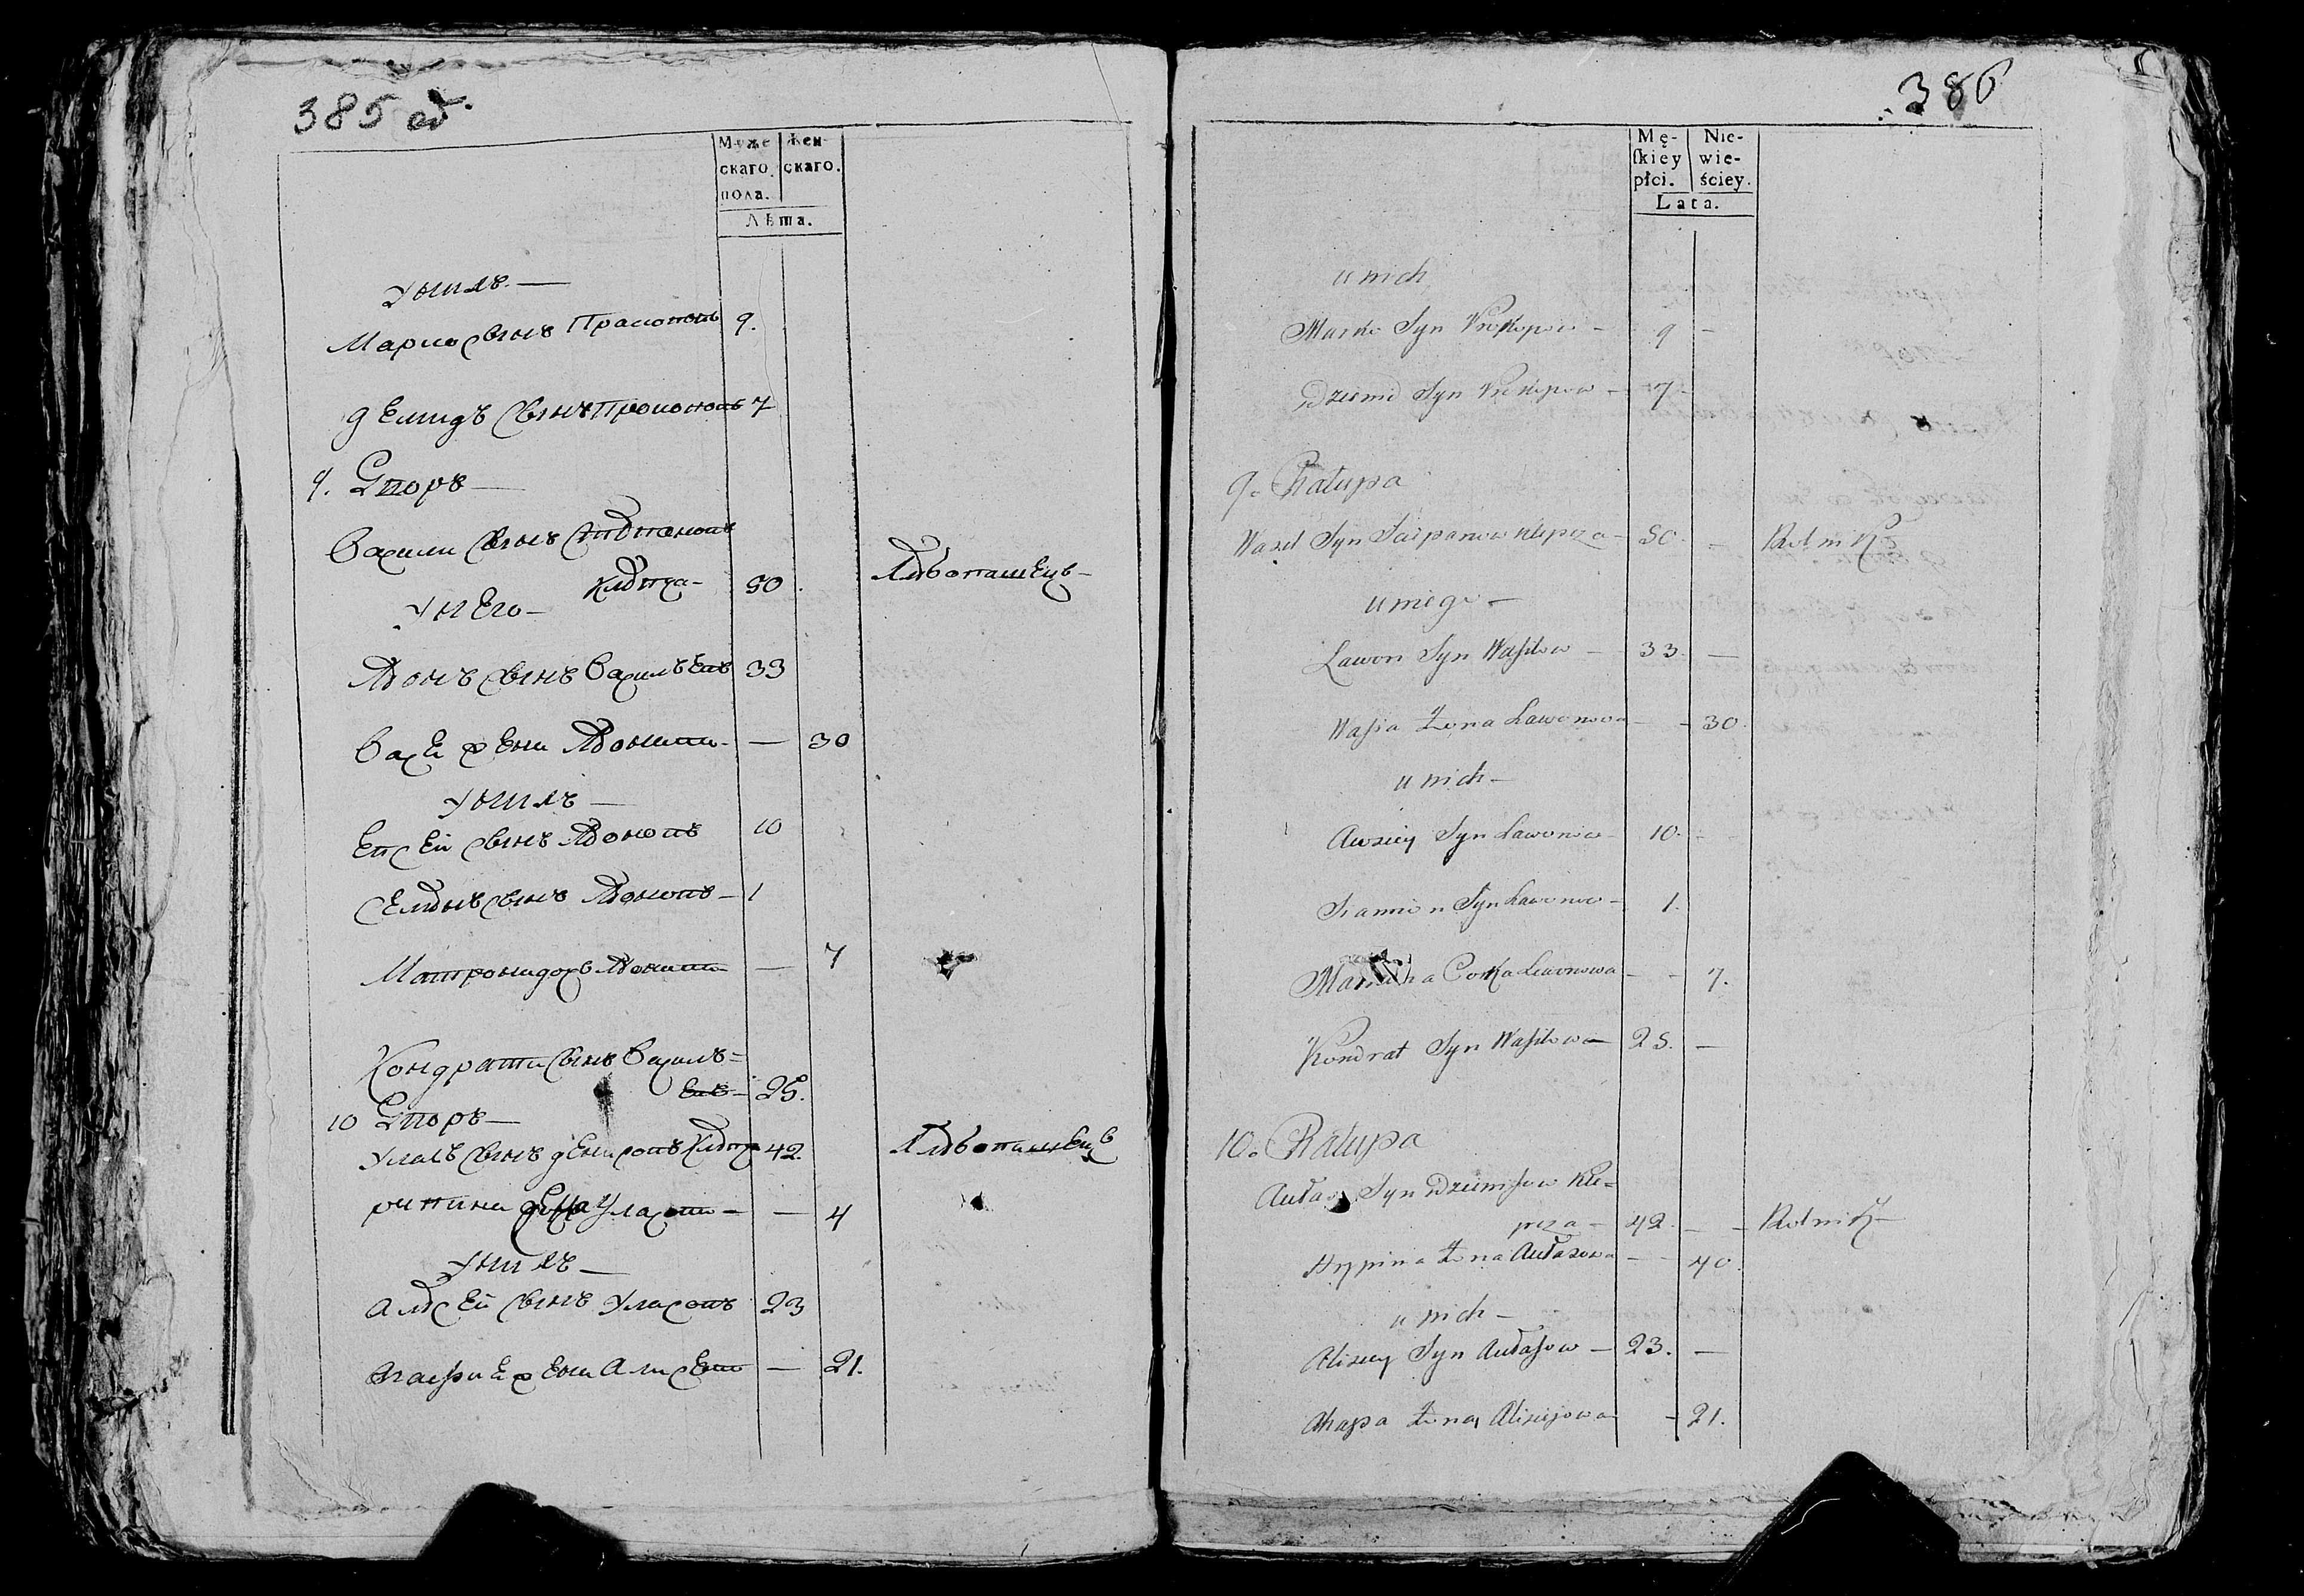 385 об.
Муже
скаго
пола.
Жен
скаго.
Лѣта.
У нихъ —
Марко сынъ Прокоповъ 9.
Демидъ сынъ Прокоповъ 7
9. Дворъ —
Василии сынъ Степановъ
Клепча — 50.
У него —
Леонъ сынъ Васильевъ 33
жена Леонова — 30
У нихъ —
Евсей сынъ Леоновъ 10
Семенъ сынъ Леоновъ — 1
Матрона дочь Леонова — 7
Кондратий сынъ Василь=
евъ — 25.
10 Дворъ —
Уласъ сынъ Денисовъ Клепча 42.
жена Уласова — — 4
У нихъ —
Алисей сынъ Уласовъ 23
жена Алисеева — 21.
386
Mę-
ſkiey
płci.
Nie-
wie-
ściey.
Lata.
u nich
Marko Syn Prokopow — 9 —
Dziemid Syn Prokopow — 7.
9. Chałupa
Wasil Syn Sciepanow Klepcza — 50. — Rolnik
u niego —
Lawon Syn Wasilow — 33. —
Wasia Żona Lawonowa — — 30.
u nich —
Awsiey Syn Lawonow — 10. —
Siamion Syn Lawonow — 1.
Corka Lawonowa — — 7.
Kondrat Syn Wasilow — 25. —
10. Chałupa
Aułas Syn Dzienisow Kle=
pcza — 42. — — Rolnik —
Hrypina Żona Aułasowa — — 40.
u nich —
Alisiey Syn Aułasow — 23. —
Ahapa Żona Alisiejowa — 21.